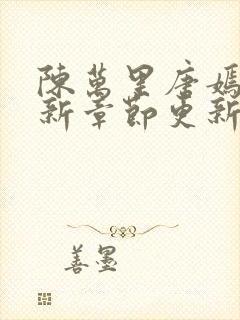 陳萬里唐嫣
新章節更新
善墨